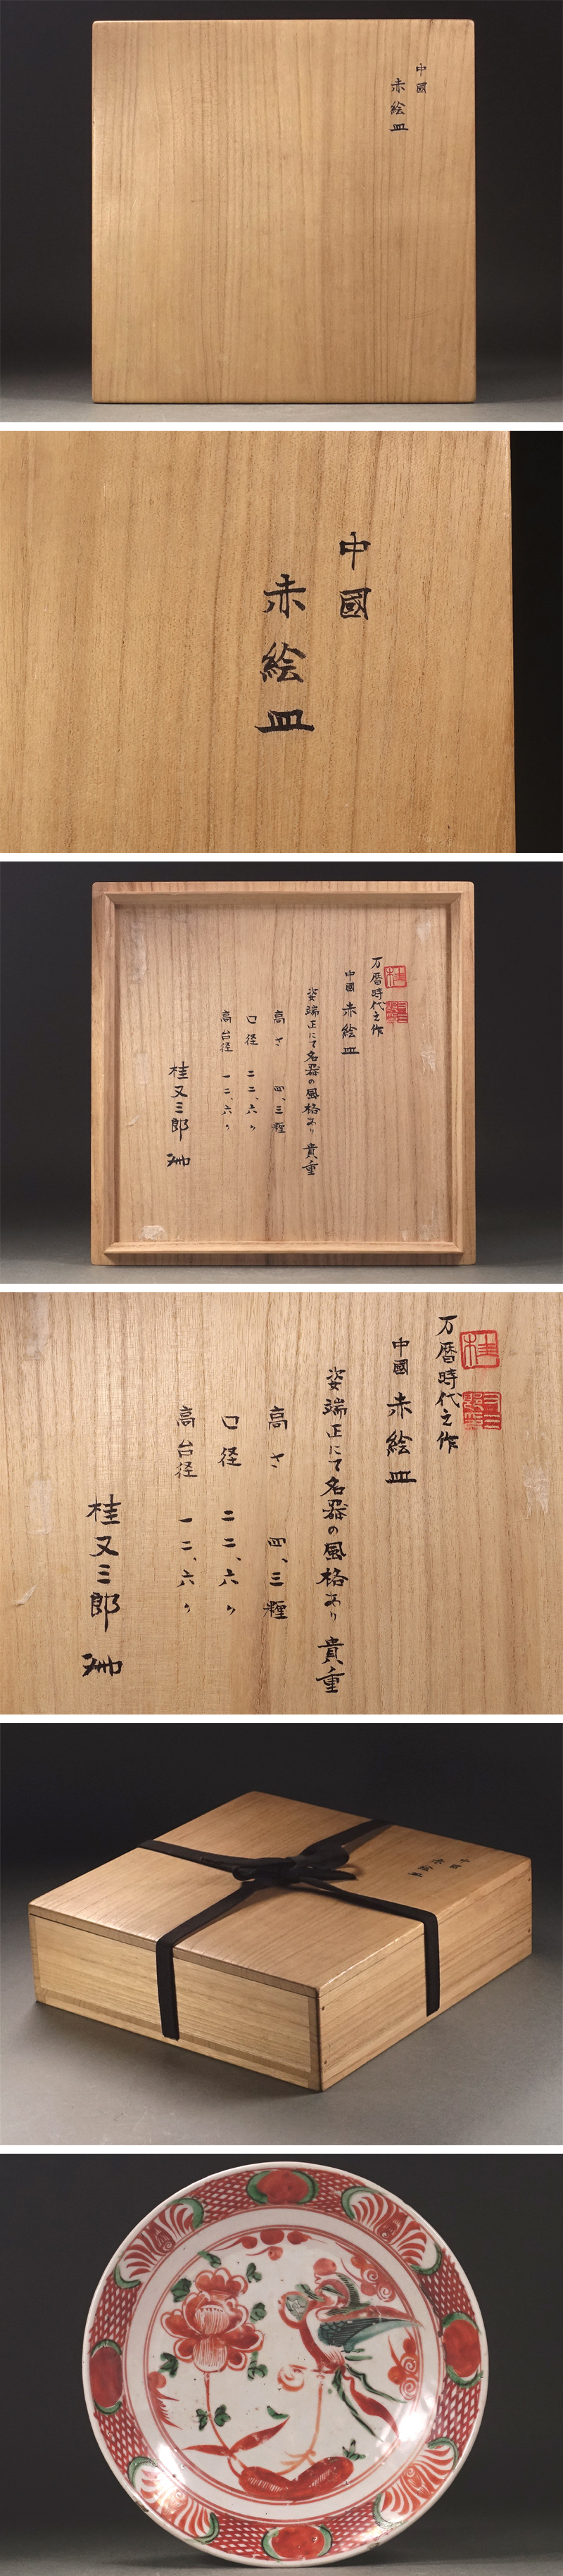 中國
赤絵皿
中國
赤絵皿
万暦時代之作
中國 赤絵皿
姿端正にて名器の風格あり 貴重
高さ 四、三糎
口径 二二、六〃
高台径 一二、六〃
桂又三郎
桂
万暦時代之作
中國 赤絵皿
姿端正にて名器の風格あり 貴重
高さ 四、三糎
口径 二二、六〃
高台径 一二、六〃
桂又三郎
桂
中國
赤絵皿